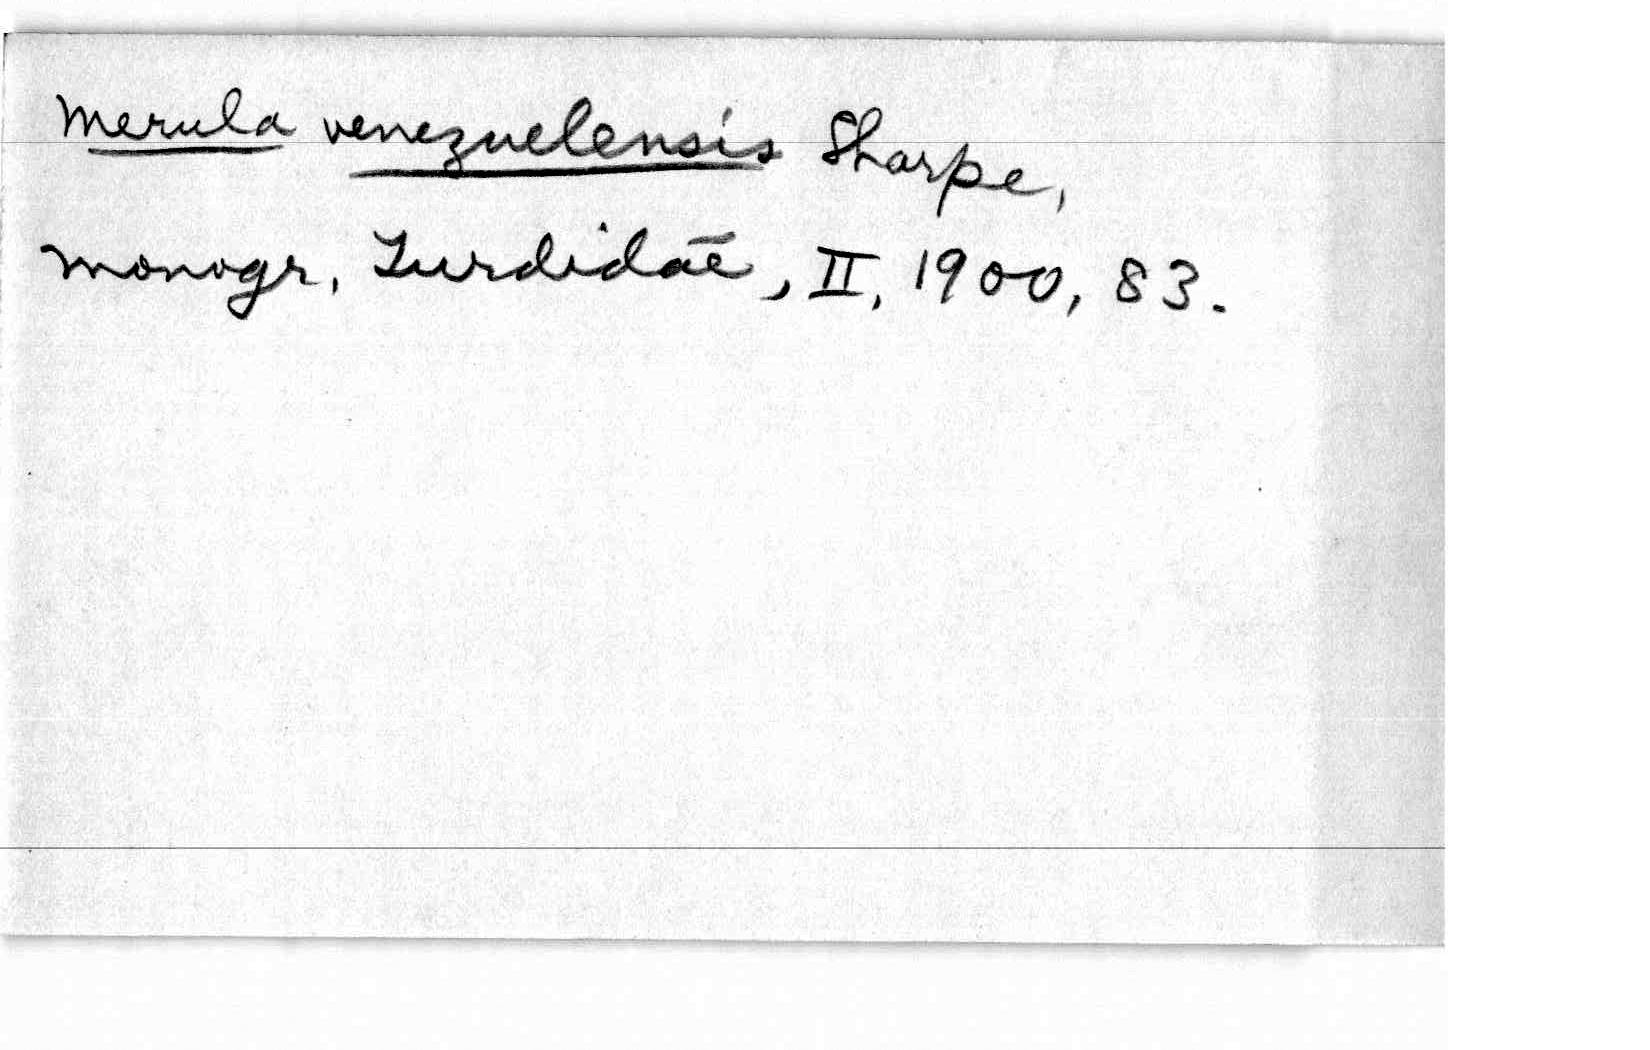 Merula venezuelensis Sharpe,
Monogr, Turdidae, II, 1900, 83.